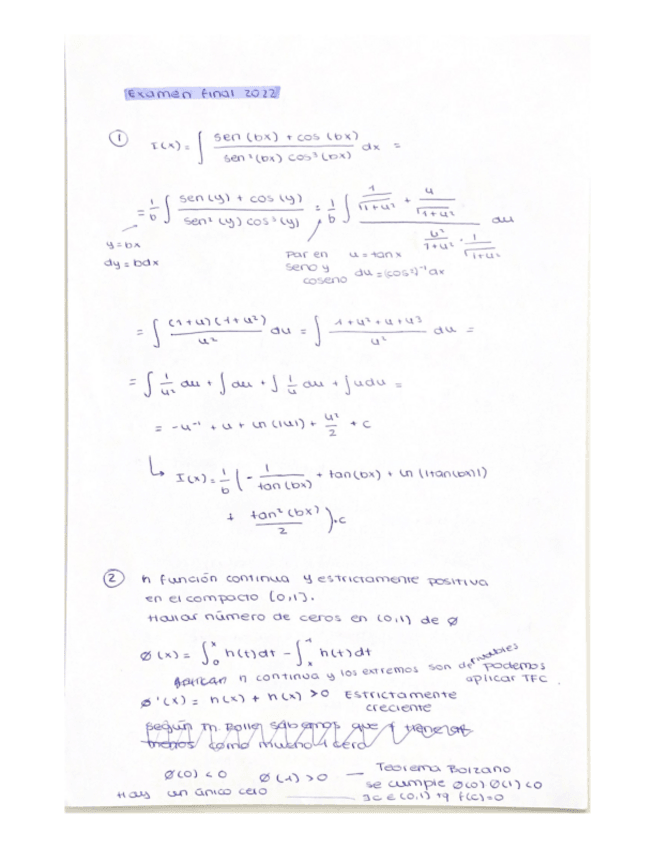 Examen final 2022
① I(x) = ∫ (sen(bx) + cos(bx)) / (sen²(bx) cos³(bx)) dx =
= 1/b ∫ (sen(y) + cos(y)) / (sen²(y) cos³(y)) = 1/b ∫ (1/√(1+u²) + u/√(1+u²)) / (u²/(1+u²) · 1/√(1+u²)) du
y = bx
dy = bdx
Par en seno y coseno
u = tan x
du = (cos²)⁻¹ dx
= ∫ (1+u)(1+u²) / u² du = ∫ (1+u²+u+u³) / u² du =
= ∫ 1/u² du + ∫ du + ∫ 1/u du + ∫ u du =
= -u⁻¹ + u + ln(|u|) + u²/2 + c
↳ I(x) = 1/b ( - 1/tan(bx) + tan(bx) + ln(|tan(bx)|)
+ tan²(bx)/2 ) + c
② h función continua y estrictamente positiva
en el compacto [0,1].
Hallar número de ceros en (0,1) de ø
ø(x) = ∫₀ˣ h(t)dt - ∫ₓ¹ h(t)dt
h continua y los extremos son derivables podemos
aplicar TFC.
ø'(x) = h(x) + h(x) > 0 Estrictamente
creciente
Según Th. Rolle, sabemos que
menos como mucho 1 cero
ø(0) < 0 ø(1) > 0 — Teorema Bolzano
se cumple ø(0) ø(1) < 0
Hay un único cero ——— ∃c ∈ (0,1) tq f(c)=0